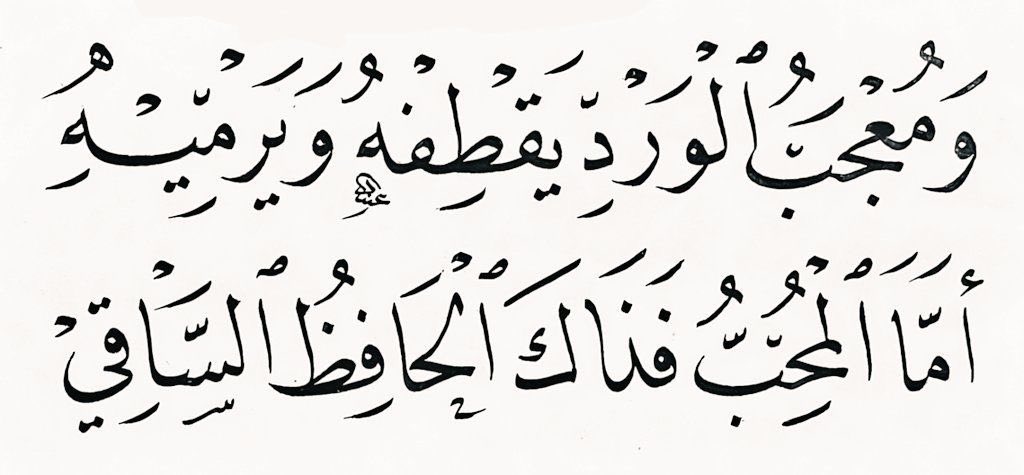 وَمُعْجَبُ ٱلْوَرْدِ يَقْطِفُهُ وَيَرْمِيْهِ
أَمَّا ٱلْمُحِبُّ فَذَاكَ ٱلْحَافِظُ ٱلسَّاقِيْ